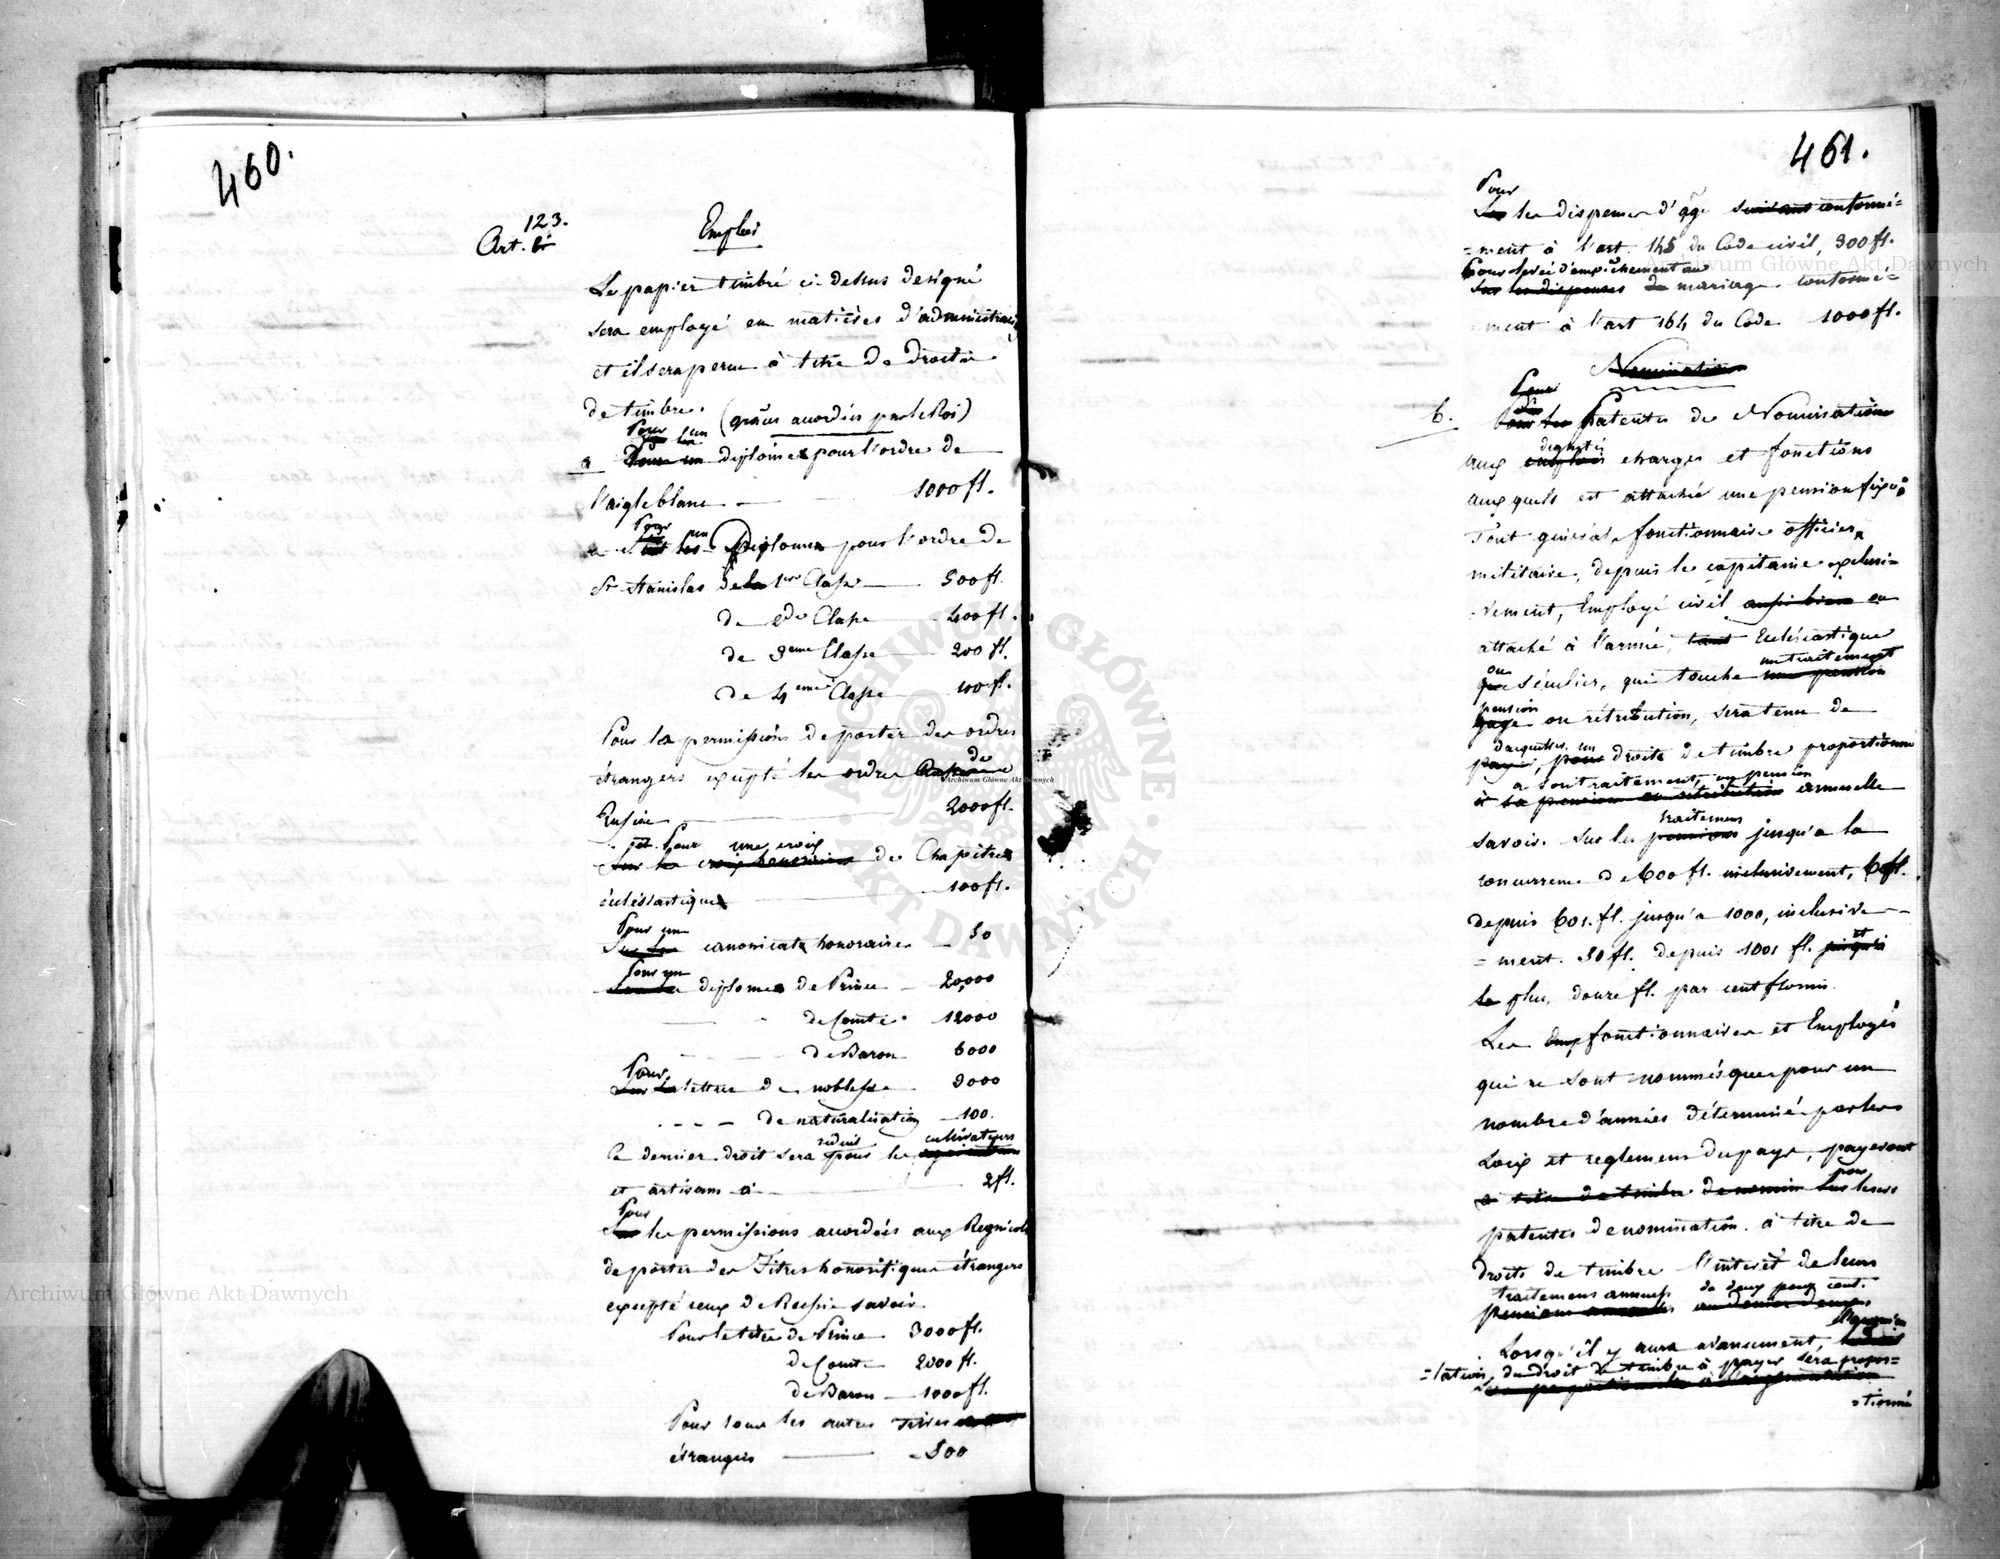 460.
123.
Art.
Emploi
Le papier timbré ci dessus designé
sera employé en matières d'administration
et il sera perçu à titre de droits
de timbre. (grâces accordées par le Roi)
Pour un
a diplôme pour l'ordre de
l'aigle blanc — 1000 fl.
Pour un
Diplome pour l'ordre de
St Stanislas de la 1ere Classe — 500 fl.
de 2de Classe — 400 fl.
de 3eme Classe — 200 fl.
de 4eme Classe — 100 fl.
Pour la permission de porter des ordres
étrangers excepté les ordres de
Russie — 2000 fl.
Pour une croix
de Chapitre
écclésiastique — 100 fl.
Pour un
canonicat honoraire — 50
Pour un
diplome de Prince — 20,000
de Comte 12000
de Baron 6000
Pour
lettres de noblesse 3000
de naturalisation — 100.
réduit cultivateurs
Ce dernier droit sera pour les
et artisans à — 2 fl.
Pour
les permissions accordées aux Regnicoles
de porter des Titres honorifiques étrangers
excepté ceux de Russie savoir
Pour le titre de Prince 3000 fl.
de Comte 2000 fl.
de Baron — 1000 fl.
Pour tous les autres titres
étrangers — 500
461.
Pour
les dispenses d'âge suivant conformé=
=ment à l'art. 145 du Code civil, 300 fl.
Pour levée d'empêchement au
Sur les dispenses de mariage conformé=
ment à l'art 164 du Code 1000 fl.
Nomination
Pour
b. Patentes de Nomination
dignités
aux emplois charges et fonctions
auxquels est attachée une pension fixe:
Tout général, fonctionnaire officier
militaire, depuis le capitaine exclusi=
=vement, Employé civil aussi bien ou
attaché à l'armée, tant Ecclésiastique
ou un traitement
que séculier, qui touche une pension
pension
gage ou rétribution, sera tenu de
d'acquitter un
payer, pour droits de timbre proportionné
a son traitement, ou pension
à la pension ou rétribution annuelle
traitemens
savoir. Sur les pensions jusqu'a la
concurrence de 600 fl. inclusivement, 6 fl.
depuis 601 fl. jusqu'a 1000, inclusive-
=ment. 30 fl. depuis 1001 fl. et jusqu'à
le plus, douze fl. par cent florins.
Les fonctionnaires et Employés
qui ne sont nommés que pour un
nombre d'années déterminé par les
Loix et reglemens du pays, payeront
pour
à titre de timbre de nomin Sur leurs
patentes de nomination à titre de
droits de timbre l'interêt de leurs
traitemens annuels de deux pour cent.
pensions annuelles au denier deux.
Lorsqu'il y aura avancement, l'augmen
=tation du droit de timbre à payer sera propor=
=tionné